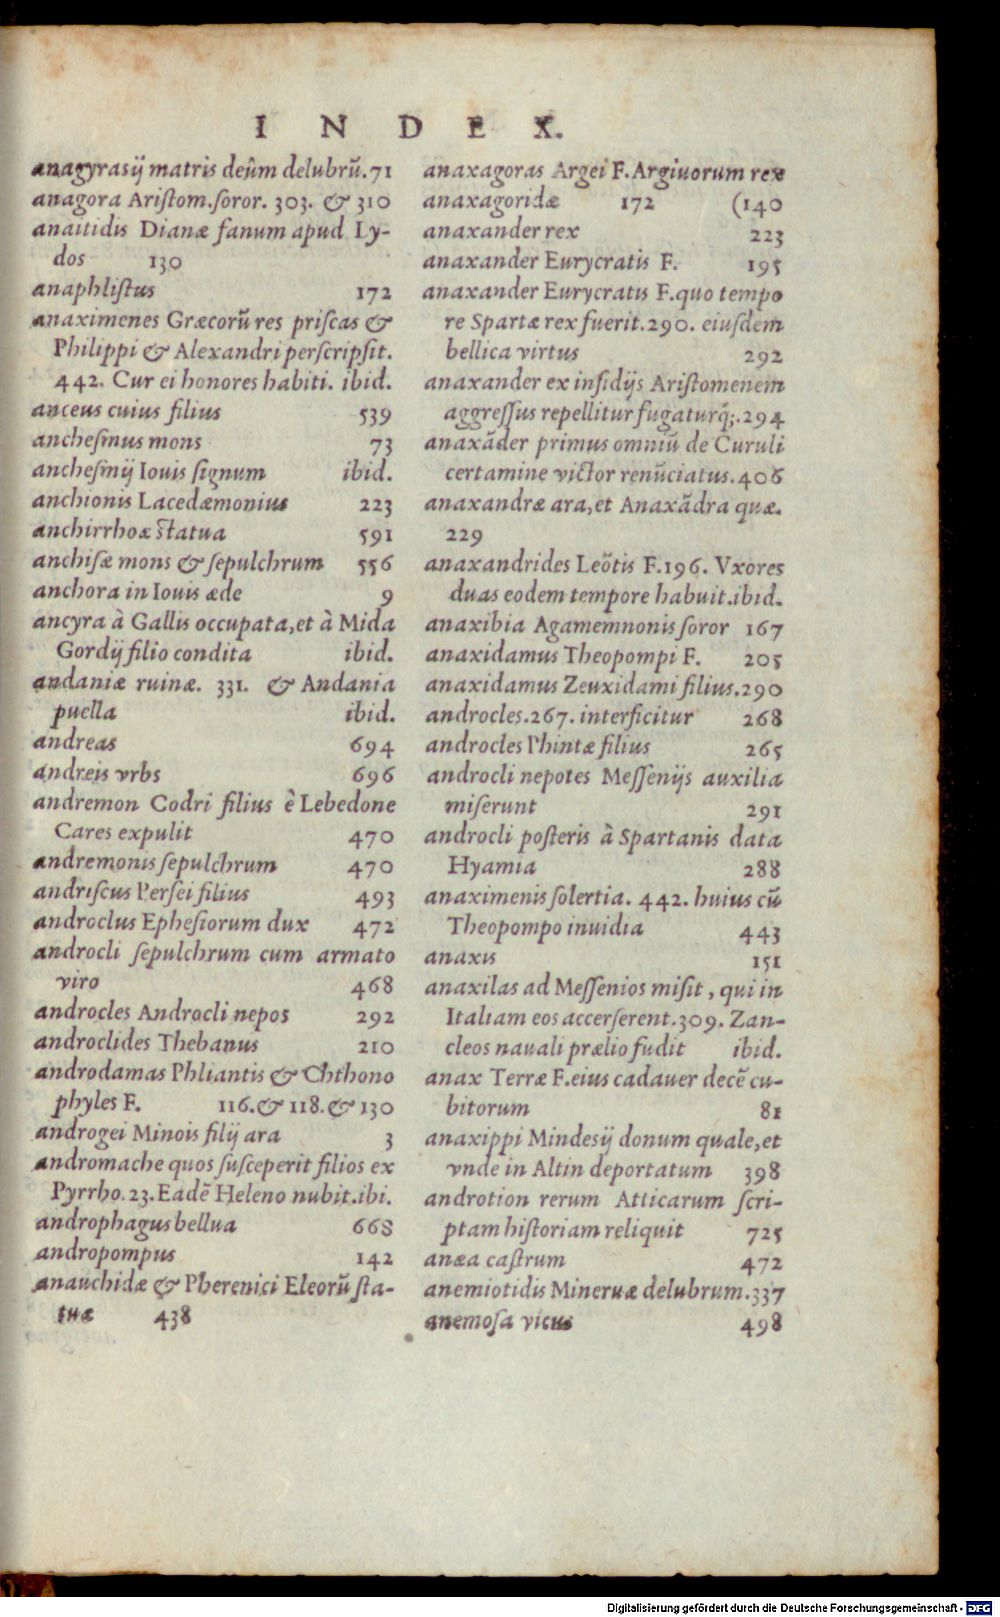 INDEX.
anagyrasij matris deûm delubrũ.71
anagora Aristom.soror. 303. & 310
anaitidis Dianæ fanum apud Ly-
dos 130
anaphlistus 172
anaximenes Græcorũ res priscas &
Philippi & Alexandri perscripsit.
442. Cur ei honores habiti. ibid.
anceus cuius filius 539
anchesmus mons 73
anchesmij Iouis signum ibid.
anchionis Lacedæmonius 223
anchirrhoæ statua 591
anchisæ mons & sepulchrum 556
anchora in Iouis æde 9
ancyra à Gallis occupata, et à Mida
Gordij filio condita ibid.
andaniæ ruinæ. 331. & Andania
puella ibid.
andreas 694
andreis vrbs 696
andremon Codri filius è Lebedone
Cares expulit 470
andremonis sepulchrum 470
andriscus Persei filius 493
androclus Ephesiorum dux 472
androcli sepulchrum cum armato
viro 468
androcles Androcli nepos 292
androclides Thebanus 210
androdamas Phliantis & Chthono
phyles F. 116.& 118.& 130
androgei Minois filij ara 3
andromache quos susceperit filios ex
Pyrrho.23.Eadẽ Heleno nubit.ibi.
androphagus bellua 668
andropompus 142
anauchidæ & Pherenici Eleorũ sta-
tuæ 438
anaxagoras Argei F.Argiuorum rex
anaxagoridæ 172 (140
anaxander rex 223
anaxander Eurycratis F. 195
anaxander Eurycratis F.quo tempo
re Spartæ rex fuerit.290. eiusdem
bellica virtus 292
anaxander ex insidijs Aristomenem
aggressus repellitur fugaturq́;.294
anaxãder primus omniũ de Curuli
certamine victor renũciatus.406
anaxandræ ara, et Anaxãdra quæ.
229
anaxandrides Leõtis F.196. Vxores
duas eodem tempore habuit.ibid.
anaxibia Agamemnonis soror 167
anaxidamus Theopompi F. 205
anaxidamus Zeuxidami filius.290
androcles.267. interficitur 268
androcles Phintæ filius 265
androcli nepotes Messenijs auxilia
miserunt 291
androcli posteris à Spartanis data
Hyamia 288
anaximenis solertia. 442. huius cũ
Theopompo inuidia 443
anaxis 151
anaxilas ad Messenios misit, qui in
Italiam eos accerserent.309. Zan-
cleos nauali prælio fudit ibid.
anax Terræ F.eius cadauer decẽ cu-
bitorum 81
anaxippi Mindesij donum quale, et
vnde in Altin deportatum 398
androtion rerum Atticarum scri-
ptam historiam reliquit 725
anæa castrum 472
anemiotidis Mineruæ delubrum.337
anemosa vicus 498
Digitalisierung gefördert durch die Deutsche Forschungsgemeinschaft - DFG